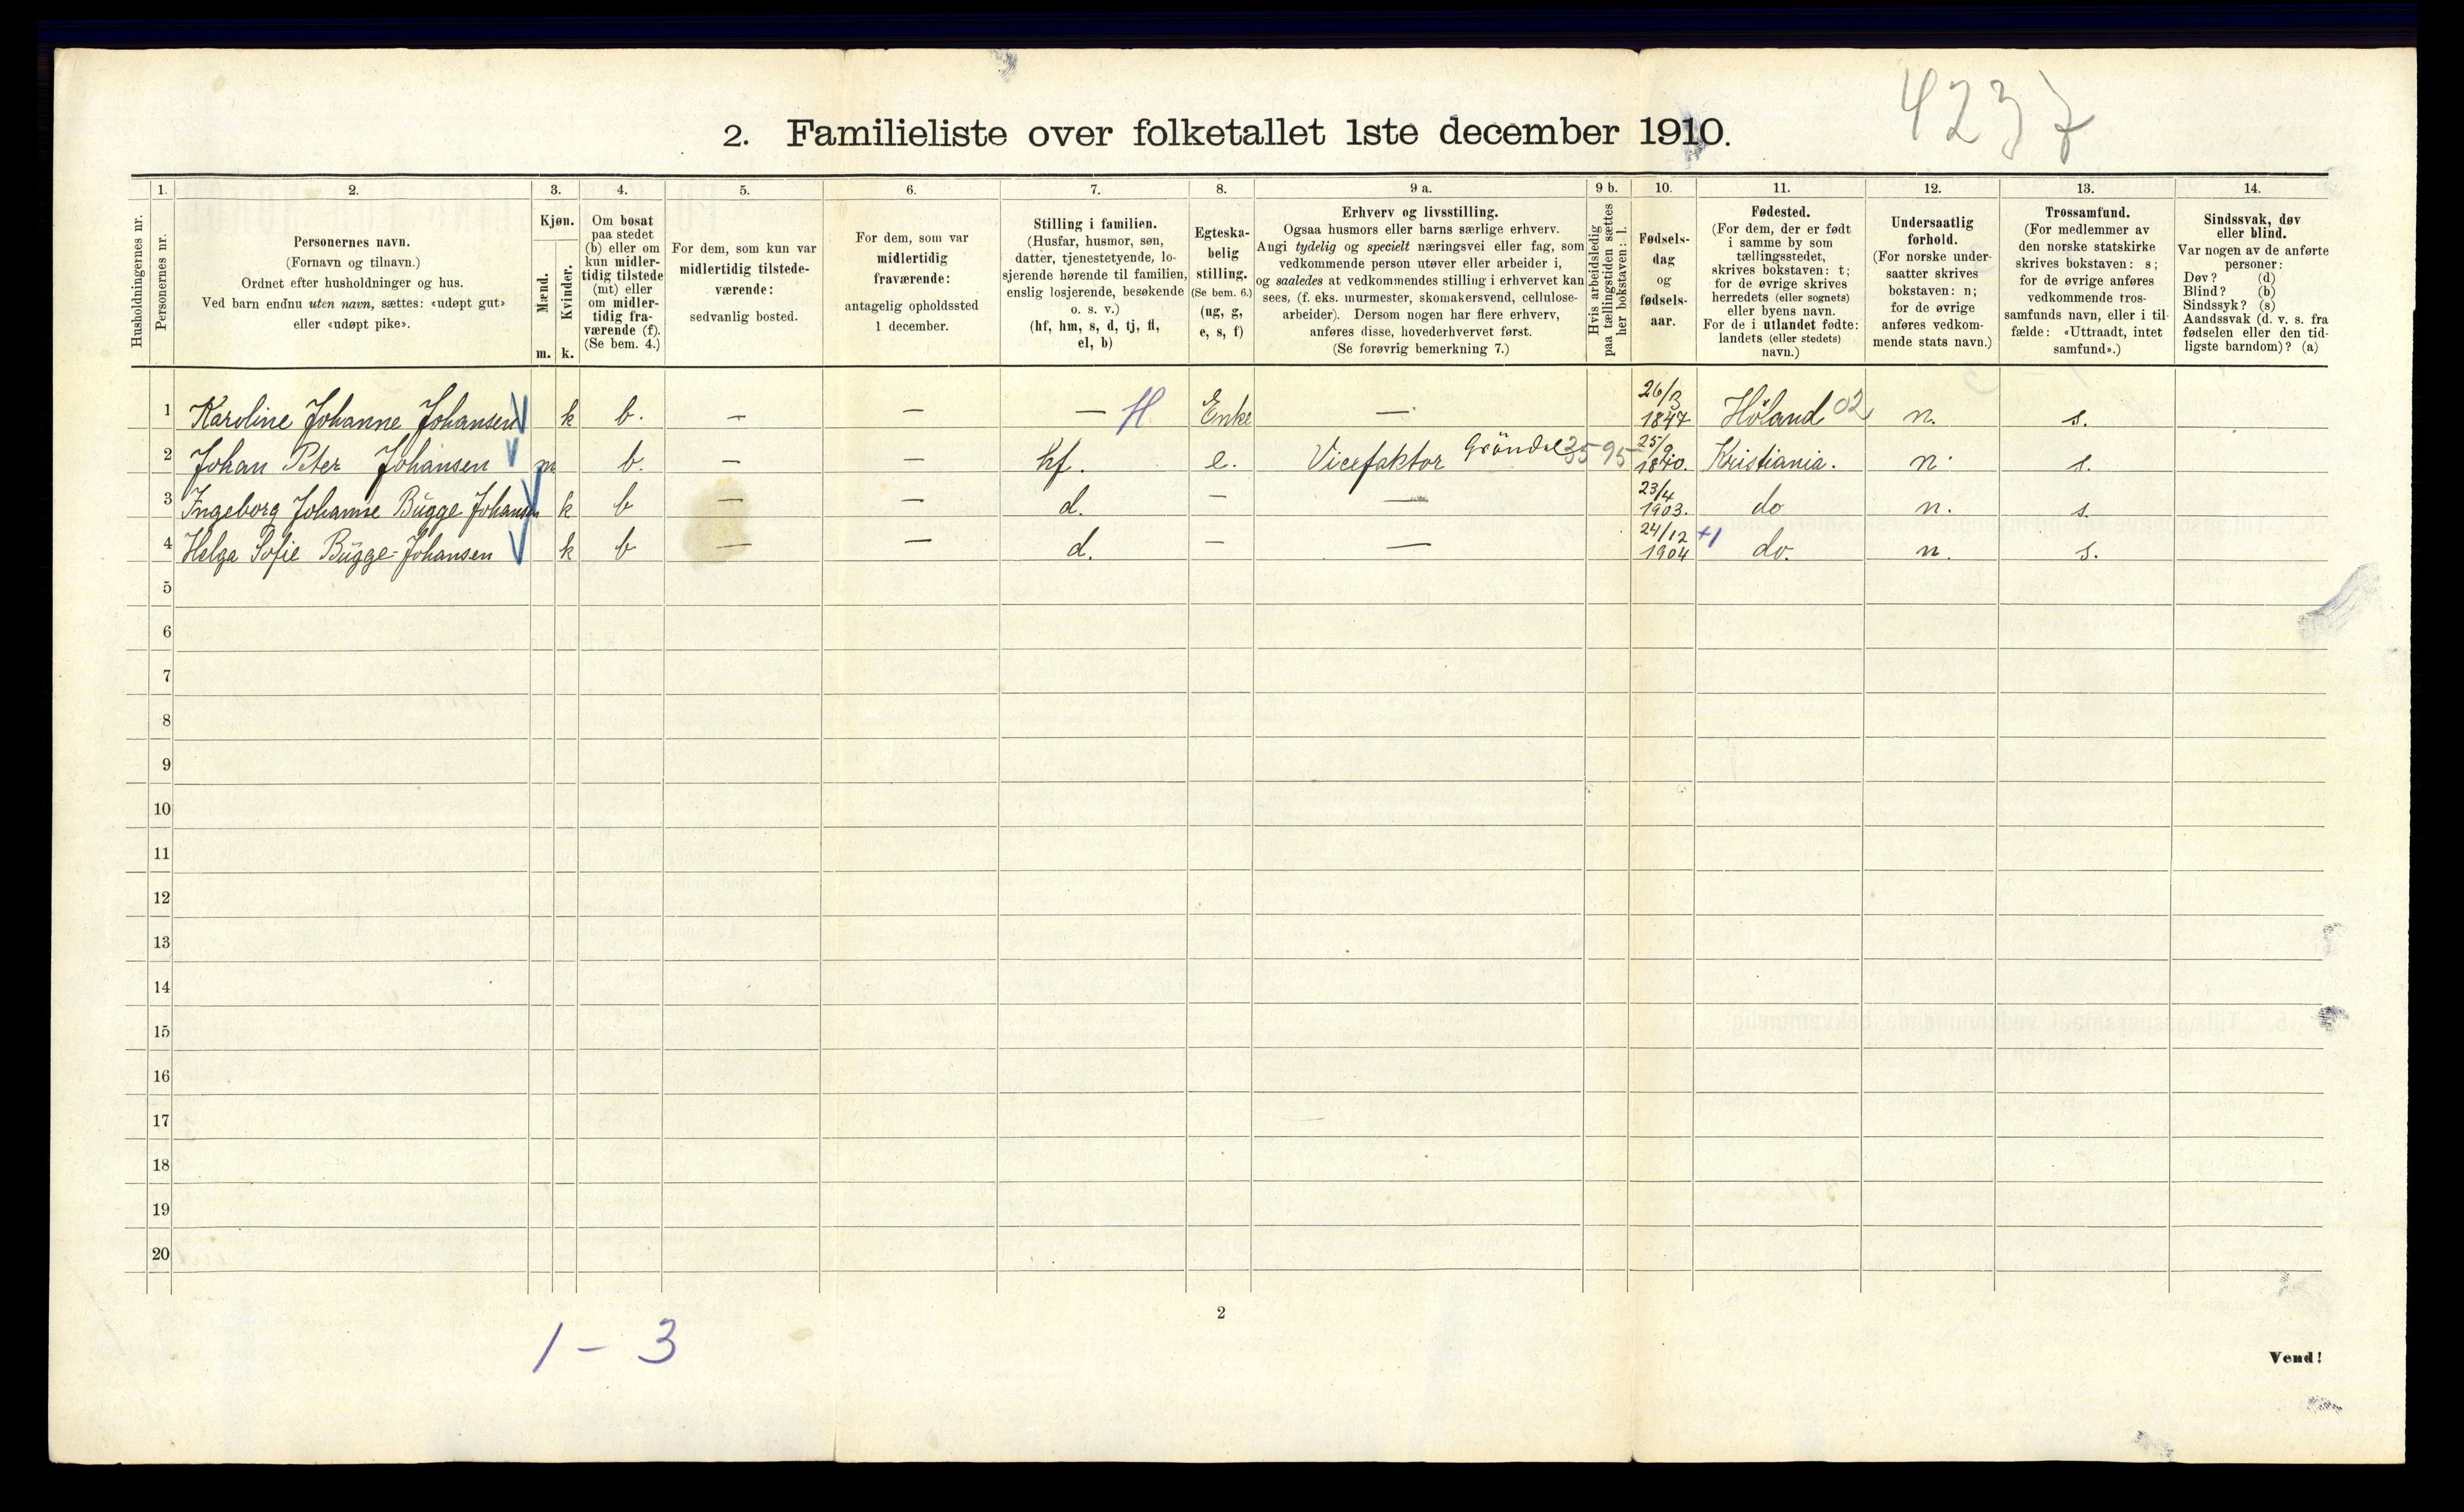 4237
2. Familieliste over folketallet 1ste december 1910.
Husholdningernes nr.
1. Personernes nr.
2. Personernes navn.
(Fornavn og tilnavn.)
Ordnet efter husholdninger og hus.
Ved barn endnu uten navn, sættes: «udøpt gut»
eller «udøpt pike».
3. Kjøn.
Mænd. m.
Kvinder. k.
4. Om bosat
paa stedet
(b) eller om
kun midler-
tidig tilstede
(mt) eller
om midler-
tidig fra-
værende (f).
(Se bem. 4.)
5. For dem, som kun var
midlertidig tilstede-
værende:
sedvanlig bosted.
6. For dem, som var
midlertidig
fraværende:
antagelig opholdssted
1 december.
7. Stilling i familien.
(Husfar, husmor, søn,
datter, tjenestetyende, lo-
sjerende hørende til familien,
enslig losjerende, besøkende
o. s. v.)
(hf, hm, s, d, tj, fl,
el, b)
8. Egteska-
belig
stilling.
(Se bem. 6.)
(ug, g,
e, s, f)
9 a. Erhverv og livsstilling.
Ogsaa husmors eller barns særlige erhverv.
Angi tydelig og specielt næringsvei eller fag, som
vedkommende person utøver eller arbeider i,
og saaledes at vedkommendes stilling i erhvervet kan
sees, (f. eks. murmester, skomakersvend, cellulose-
arbeider). Dersom nogen har flere erhverv,
anføres disse, hovederhvervet først.
(Se forøvrig bemerkning 7.)
9 b. Hvis arbeidsledig
paa tællingstiden sættes
her bokstaven: l.
10. Fødsels-
dag
og
fødsels-
aar.
11. Fødested.
(For dem, der er født
i samme by som
tællingsstedet,
skrives bokstaven: t;
for de øvrige skrives
herredets (eller sognets)
eller byens navn.
For de i utlandet fødte:
landets (eller stedets)
navn.)
12. Undersaatlig
forhold.
(For norske under-
saatter skrives
bokstaven: n;
for de øvrige
anføres vedkom-
mende stats navn.)
13. Trossamfund.
(For medlemmer av
den norske statskirke
skrives bokstaven: s;
for de øvrige anføres
vedkommende tros-
samfunds navn, eller i til-
fælde: «Uttraadt, intet
samfund».)
14. Sindssvak, døv
eller blind.
Var nogen av de anførte
personer:
Døv? (d)
Blind? (b)
Sindssyk? (s)
Aandssvak (d. v. s. fra
fødselen eller den tid-
ligste barndom)? (a)
1 Karoline Johanne Johansen k b. — — — H Enke — 26/3 1847 Høland 02 n. s.
2 Johan Peter Johansen m b. — — hf. e. Vicefaktor Gröndal 35 95 25/9 1840. Kristiania. n. s.
3 Ingeborg Johanne Bugge Johansen k b — — d. — — 23/4 1903. do n. s.
4 Helga Sofie Bugge-Johansen k b — — d. — — 24/12 1904 +1 do. n. s.
5
6
7
8
9
10
11
12
13
14
15
16
17
18
19
20
2
1 - 3
Vend!